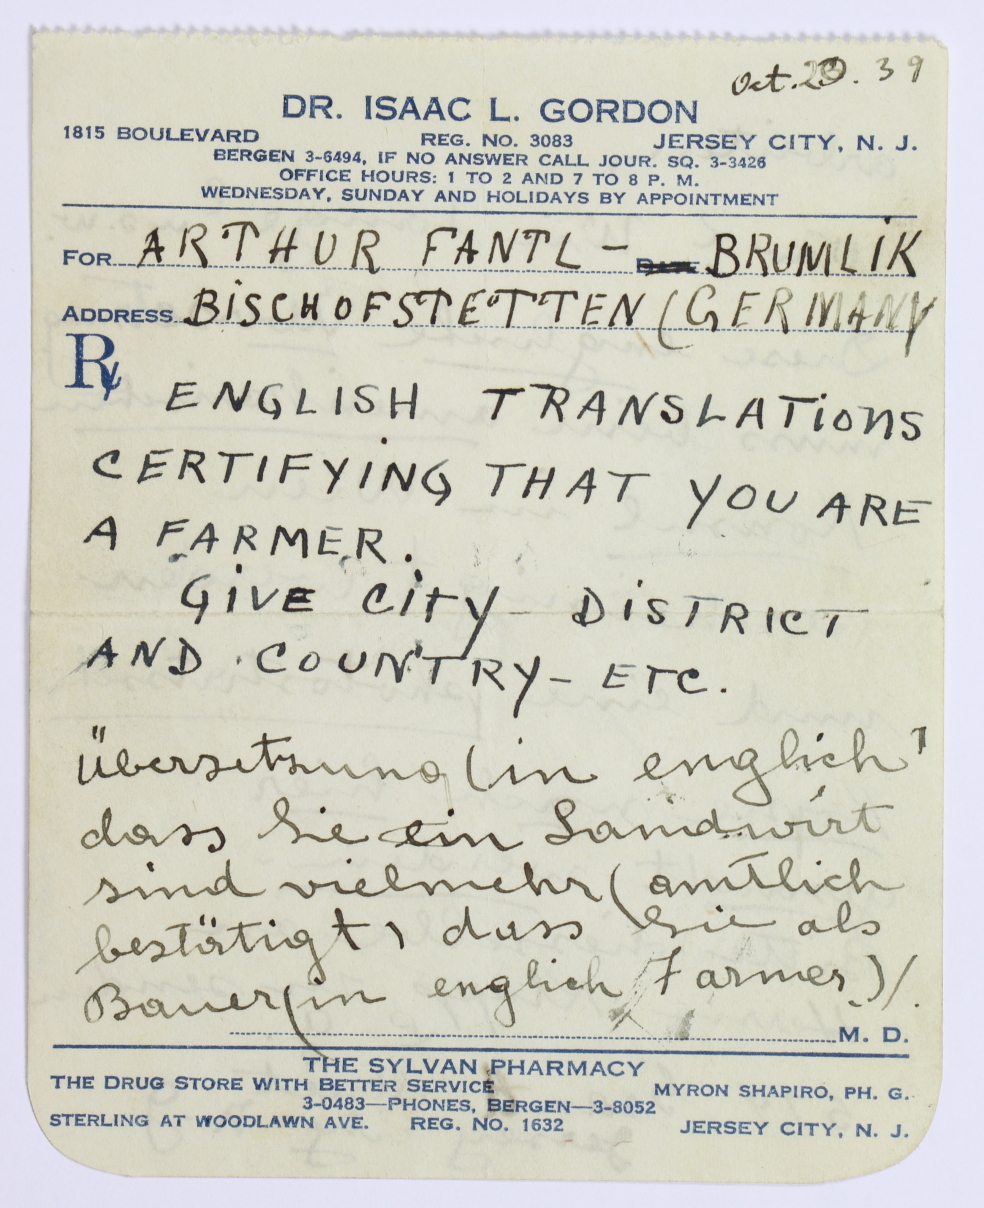 Oct. 20. 39
DR. ISAAC L. GORDON
1815 BOULEVARD REG. NO. 3083 JERSEY CITY, N. J.
BERGEN 3-6494, IF NO ANSWER CALL JOUR. SQ. 3-3426
OFFICE HOURS: 1 TO 2 AND 7 TO 8 P. M.
WEDNESDAY, SUNDAY AND HOLIDAYS BY APPOINTMENT
FOR ARTHUR FANTL – BRUMLIK
ADDRESS BISCHOFSTETTEN (GERMANY
Rx ENGLISH TRANSLATIONS
CERTIFYING THAT YOU ARE
A FARMER.
GIVE CITY – DISTRICT
AND COUNTRY – ETC.
Übersetzung (in englich)
dass Sie ein Landwirt
sind vielmehr (amtlich
bestätigt) dass Sie als
Bauer (in englich Farmer)/.
M. D.
THE SYLVAN PHARMACY
THE DRUG STORE WITH BETTER SERVICE MYRON SHAPIRO, PH. G.
3-0483—PHONES, BERGEN—3-8052
STERLING AT WOODLAWN AVE. REG. NO. 1632 JERSEY CITY, N. J.